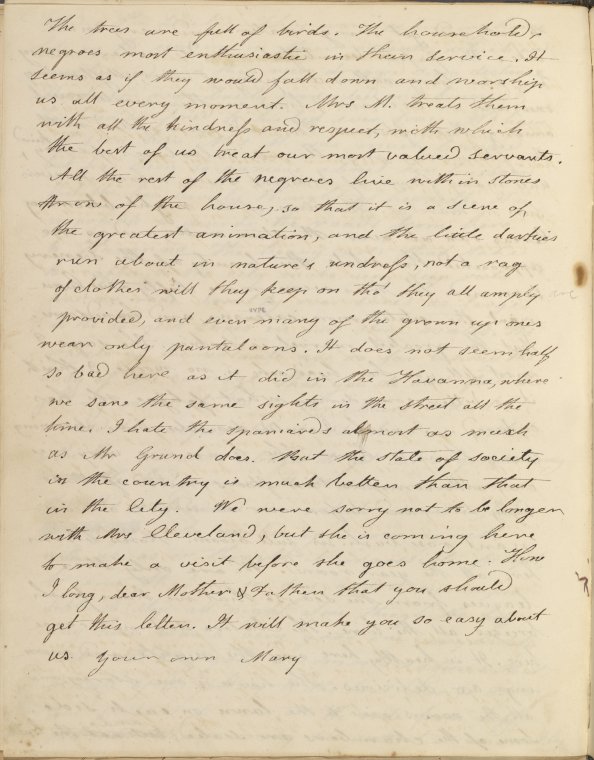 The trees are full of birds. The household
negroes most enthusiastic in their service. It
seems as if they would fall down and worship
us all every moment. Mrs M. treats them
with all the kindness and respect, with which
the best of us treat our most valued servants.
All the rest of the negroes live within stones
throw of the house, so that it is a scene of
the greatest animation, and the little darkies
run about in nature's undress, not a rag
of clothes will they keep on tho' they all amply are
provided, and even many of the grown up ones
wear only pantaloons. It does not seem half
so bad here as it did in the Havanna, where
we saw the same sights in the street all the
time. I hate the spaniards almost as much
as Mr Grund does. But the state of society
in the country is much better than that
in the City. We were sorry not to be longer
with Mrs Cleveland, but she is coming here
to make a visit before she goes home. How
I long, dear Mother & Father that you should
get this letter. It will make you so easy about
us. Your own Mary